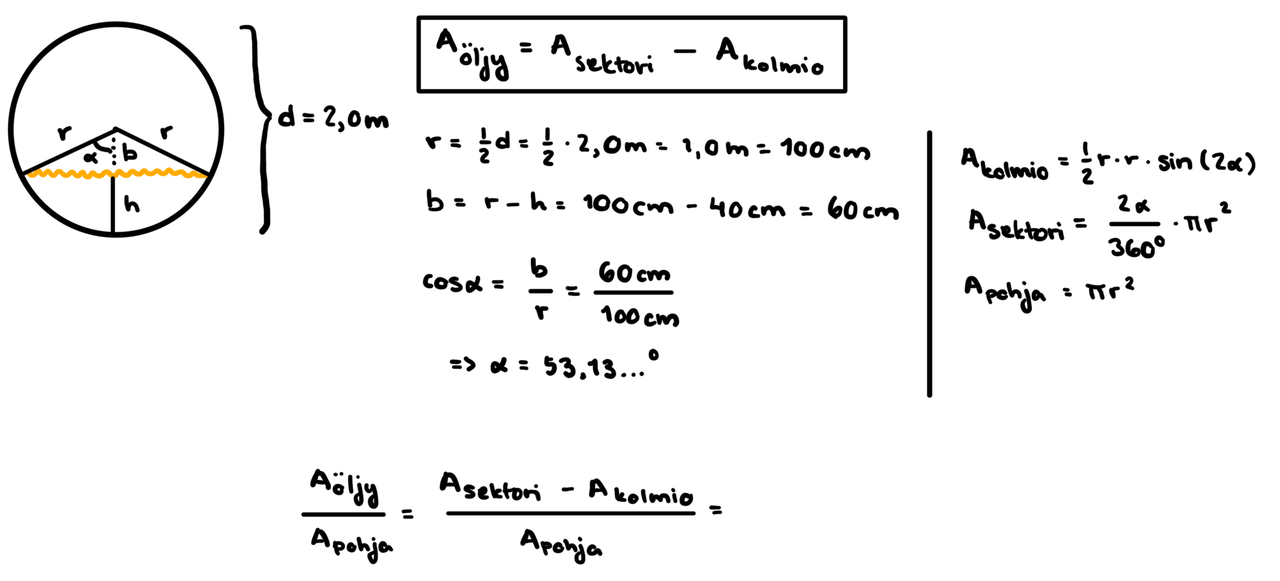 A öljy = A sektori − A kolmio
r
r
α
b
h
d = 2,0 m
r = 1/2 d = 1/2 · 2,0 m = 1,0 m = 100 cm
b = r − h = 100 cm − 40 cm = 60 cm
cos α = b/r = 60 cm/100 cm
=> α = 53,13...°
A kolmio = 1/2 r · r · sin (2α)
A sektori = 2α/360° · πr²
A pohja = πr²
A öljy/A pohja = A sektori − A kolmio/A pohja =